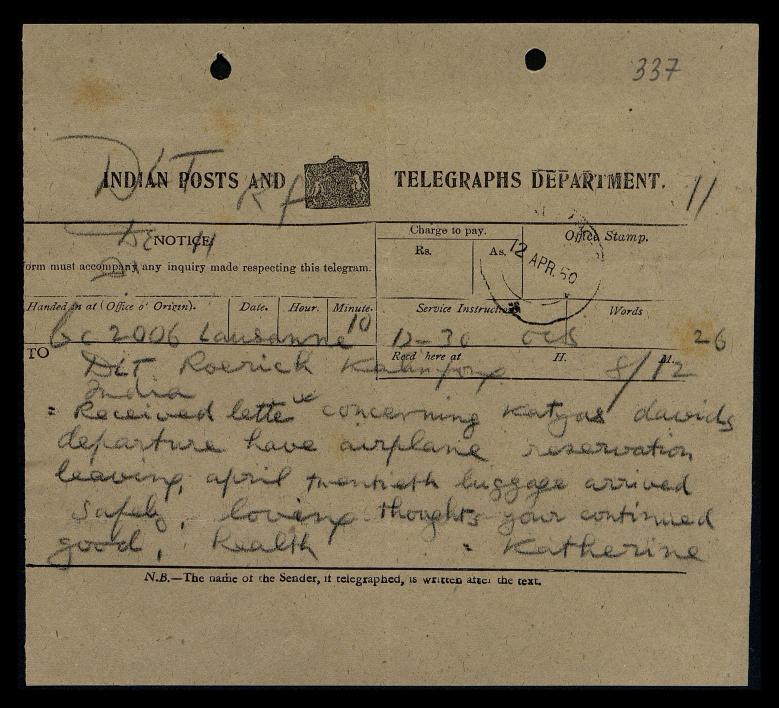 337
DLT
INDIAN POSTS AND TELEGRAPHS DEPARTMENT. 11
NOTICE.
orm must accompany any inquiry made respecting this telegram.
Charge to pay.
Rs. As.
Office Stamp.
12 APR. 50
Handed in at (Office of Origin). Date. Hour. Minute. Service Instructions Words
2006 Lausanne 10 12-30 26
TO
Recd here at H. M.
8/12
DLT Roerich Kalimpong
India
= Received letter concerning Katyas davids
departure have airplane reservation
leaving, april twentieth luggage arrived
safely, loving thoughts your continued
good, health = Katherine
N.B.—The name of the Sender, if telegraphed, is written after the text.